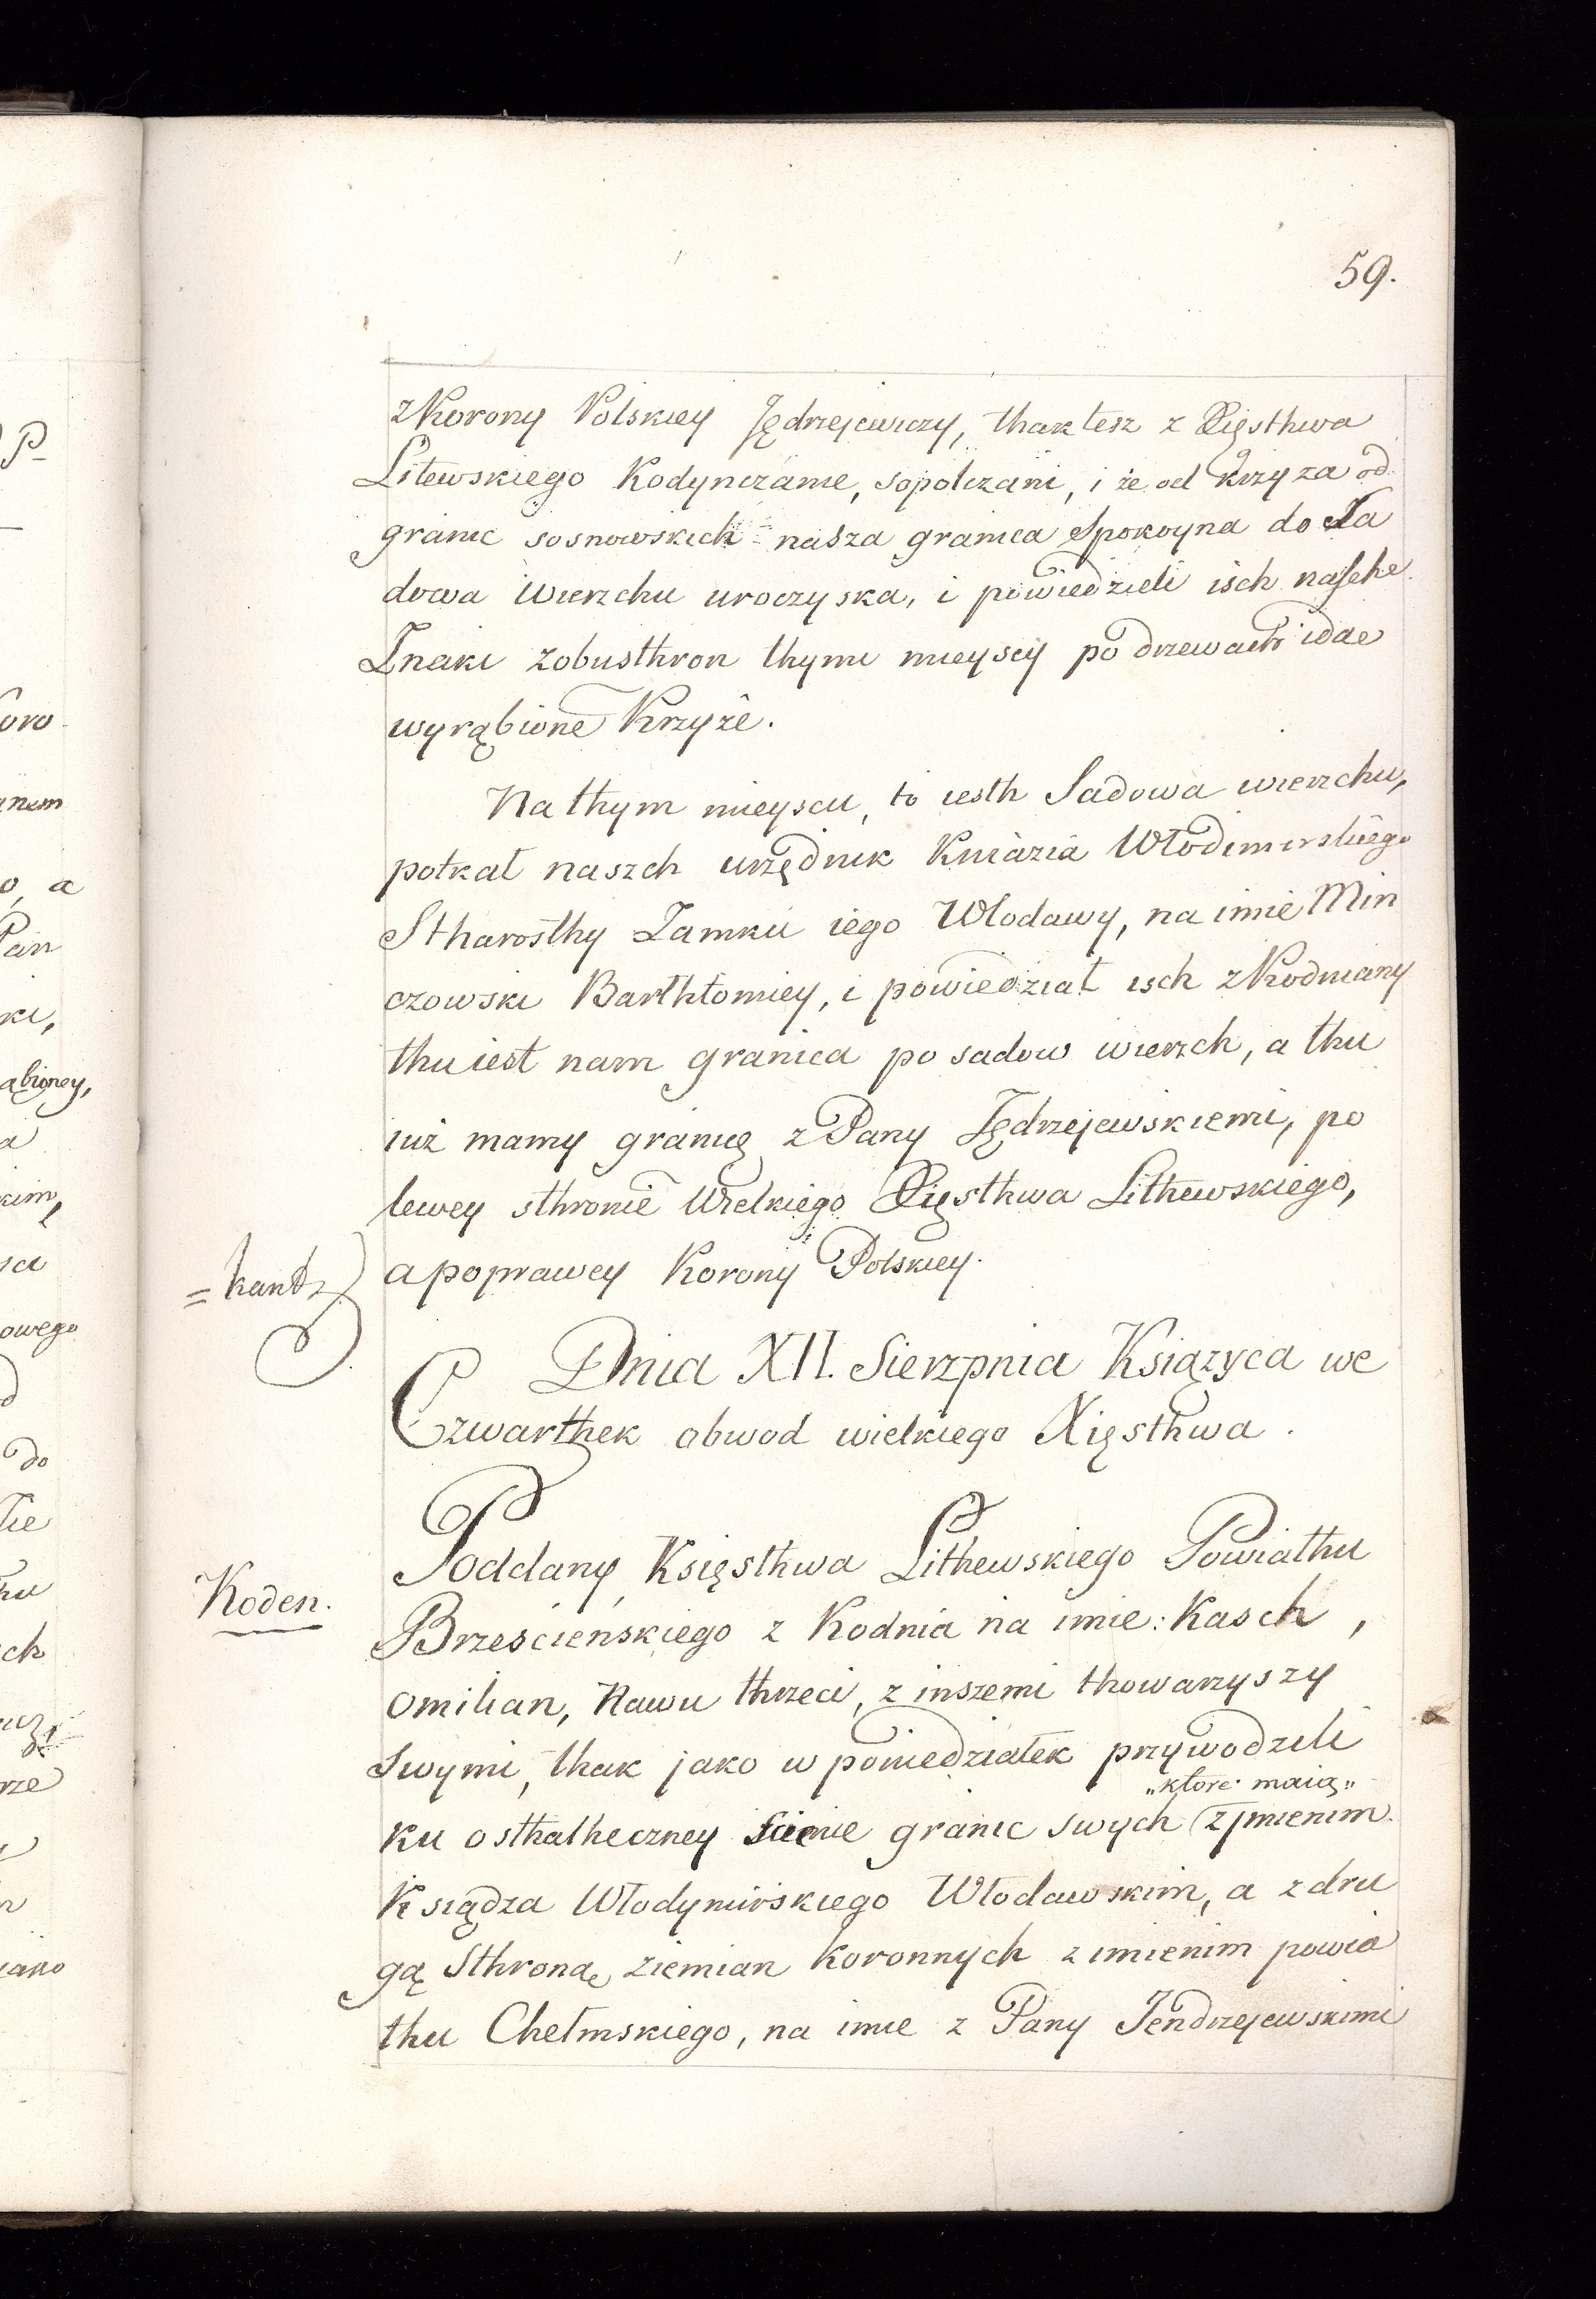 59.
z Korony Polskiey Jędrzejewiczy, thaktesz z Xięsthwa
Litewskiego Kodynczanie, sopolczani, i że od krzyza od
granic sosnowskich nasza granica Spokoyna do Sa
dowa Wierzchu uroczyska, i powiedzieli isch nasche
Znaki zobusthron thymi mieyscy po drzewach idae
wyrąbione Krzyże.
Na thym mieyscu, to iesth Sadowa wierzchu,
potkał naszch urzędnik Kniazia Włodimirskiego
Stharosthy Zamku iego Wlodawy, na imie Min
czowski Barthłomiey, i powiedział isch z Kodniany
thu iest nam granica po sadow wierzch, a thu
iuż mamy granicę z Pany Jędrzejewskiemi, po
lewey sthronie Wielkiego Xięsthwa Lithewskiego,
a poprawey Korony Polskiey.
= kant
Dnia XII. Sierzpnia Książyca we
Czwarthek obwod wielkiego Xięsthwa.
Koden.
Poddany Księsthwa Lithewskiego Powiathu
Brześcieńskiego z Kodnia na imie: Kasch,
Omilian, Nawu thrzeci, z inszemi thowarzyszy
Swymi, thak jako w poniedziałek przywodzili
„ktore maią„
ku osthatheczney scienie granic swych z jmienim
Książdza Włodymirskiego Włodawskim, a z dru
gą Sthronąe ziemian koronnych z imienim powia
thu Chełmskiego, na imie z Pany Jendrzejewskimi